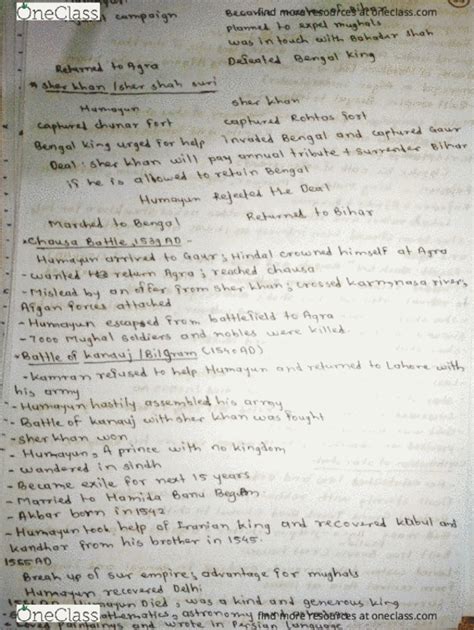 OneClass
find more resources at oneclass.com
campaign
Planned to expel mughals
was in touch with Bahadur Shah
Returned to Agra
Defeated Bengal king
* Sher khan / sher shah suri
Humayun
sher khan
captured chunar fort
captured Rohtas fort
Bengal king urged for help
invaded Bengal and captured Gaur
Deal: sher khan will pay annual tribute + surrenter Bihar
if he is allowed to retain Bengal
Humayun Rejected the Deal
Marched to Bengal
Returned to Bihar
Chausa Battle, 1539 AD -
- Humayun arrived to Gaur; Hindal crowned himself at Agra
- wanted to return Agra; reached chausa
- Mislead by an offer from sher khan; crossed karmnasa river,
Afgan forces attached
- Humayun escaped from battlefield to Agra
- 7000 Mughal soldiers and nobles were killed.
- Battle of kanauj / Bilgram (1540 AD)
- kamran refused to help Humayun and returned to Lahore with
his army
- Humayun hastily assembled his army
- Battle of kanauj with sher khan was fought
- sher khan won
- Humayun, A prince with no kingdom
- wandered in sindh
- Became exile for next 15 years
- Married to Hamida Banu Begum
- Akbar born in 1542
- Humayun took help of Iranian king and recovered kabul and
kandhar from his brother in 1545.
1555 AD
Break up of sur empire; advantage for mughals
Humayun recovered Delhi
Humayun Died; was a kind and generous king
OneClass
mathematics, astronomy
find more resources at oneclass.com
- Loved paintings and wrote in Persian language